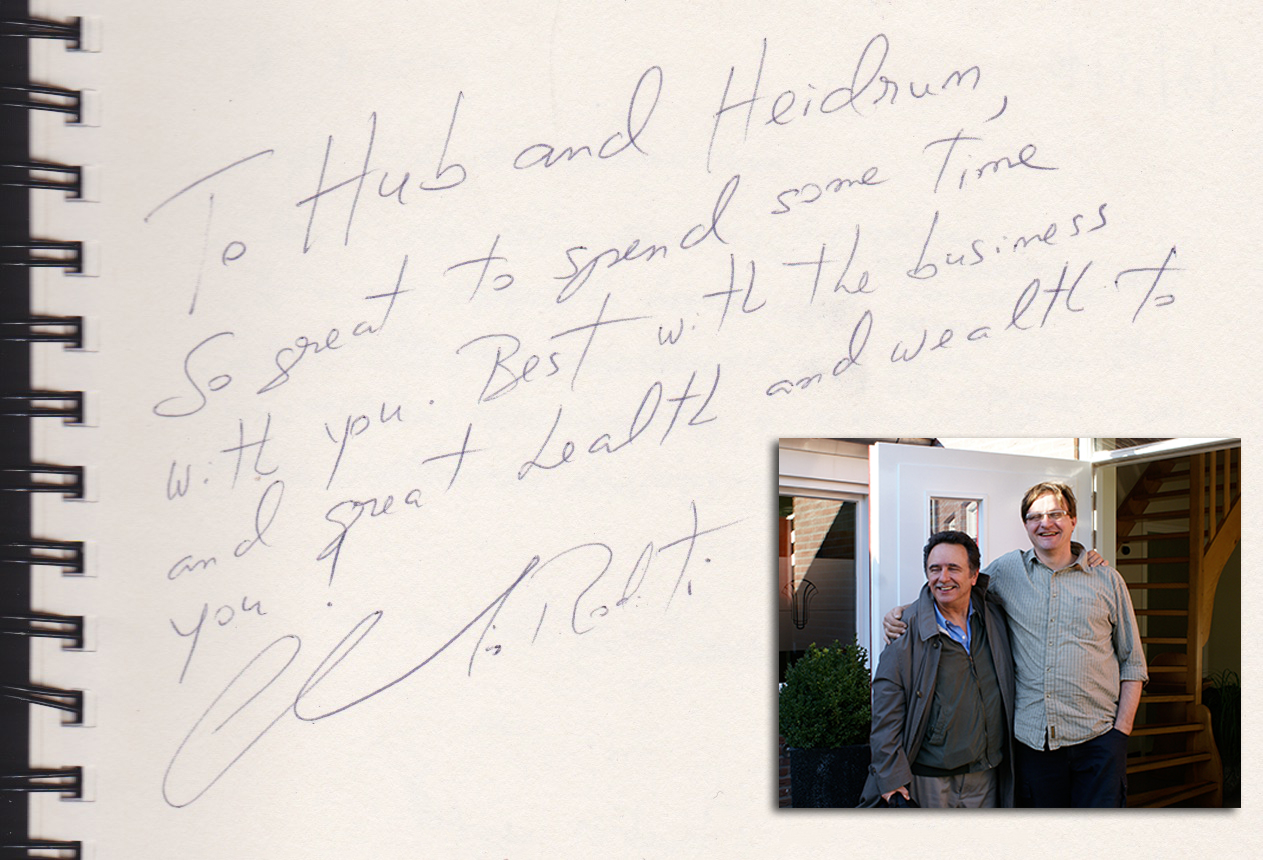 To Hub and Heidrum,
So great to spend some time
with you. Best with the business
and great health and wealth to
you.